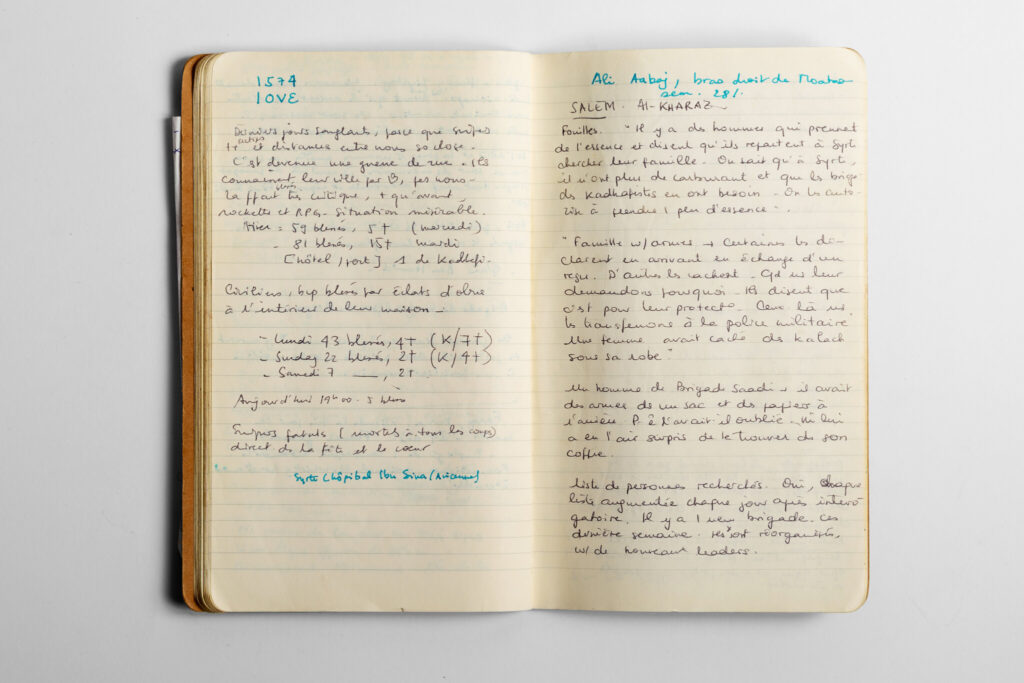 1574
IOVE
Derniers jours sanglants, parce que snipes
t+ actifs et distances entre nous so close.
C'est devenue une guerre de rue. Ils
connaissent leur ville par ♡, pas nous
la ffait très critique, + qu'avant
rockette et RPG. Situation misérable.
Hier = 59 blessés, 5† (mercredi)
- 81 blessés, 15† mardi
[hôtel, port] 1 de Kadhafi.
Civiliens, bcp blessés par éclats d'obus
à l'intérieur de leur maison -
- Lundi 43 blessés, 4† (K/7†)
- Sunday 22 blessés, 2† (K/4†)
- Samedi 7 ——, 2†
Aujourd'hui 19h00. 3 blessés
Snipers fatals (mortels à tous les coups)
direct ds la tête et le cœur
Syrte (hôpital Ibn Sina/Avicenne)
Ali Aabaj, bras droit de
sem. 28/.
SALEM. Al-KHARAZ
Fouilles. "Il y a des hommes qui prennent
de l'essence et disent qu'ils repartent à Syrte
chercher leur famille. On sait qu'à Syrte,
il n'ont plus de carburant et que les briga-
des Kadhafistes en ont besoin - On les auto-
rise à prendre 1 peu d'essence".
"Famille w/armes → Certaines les dé-
clarent en arrivant en échange d'un
reçu. D'autres les cachent - Qd ns leur
demandons pourquoi - Ils disent que
c'est pour leur protect°. Ceux là ns
les transferons à la police militaire
Une femme avait caché des Kalach
sous sa robe"
Un homme de Brigade Saadi → il avait
des armes ds un sac et des papiers à
l'arrière P. ê l'avait-il oublié - lui
a eu l'air surpris de le trouver ds son
coffre.
Liste de personnes recherchés. Oui, chaque
liste augmentée chaque jour après interro
gatoire. Il y a 1 new brigade ces
dernière semaine. Ils st réorganisés,
w/ de nouveaux leaders.